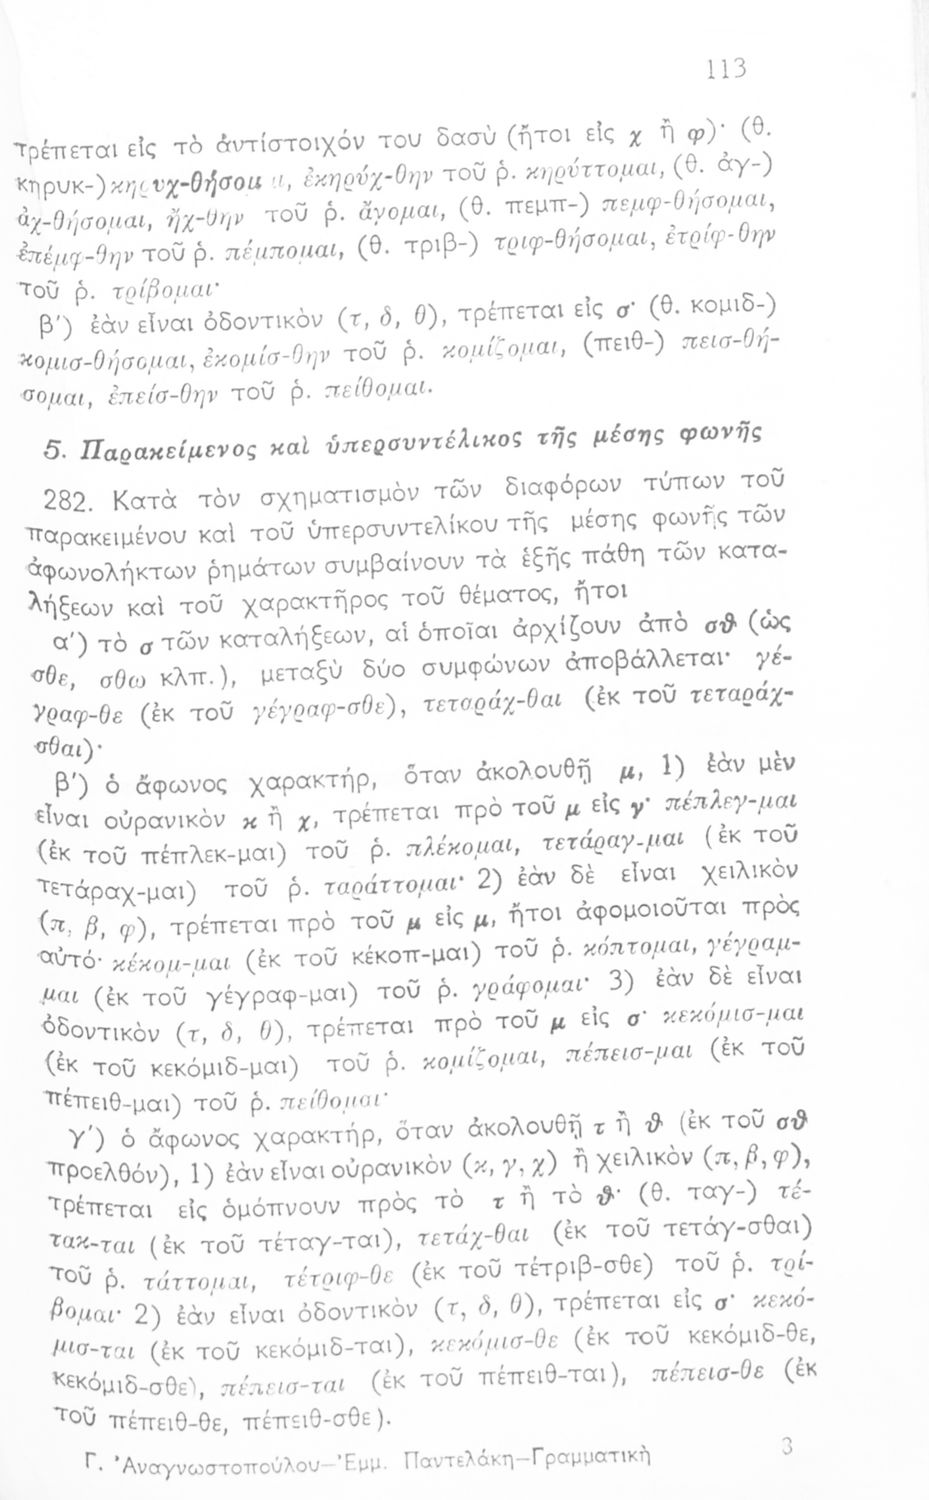 113
τρέπεται εἰς τὸ ἀντίστοιχόν του δασὺ (ἤτοι εἰς χ ἢ φ)· (θ.
κηρυκ-) κηρυχ-θήσομαι, ἐκηρύχ-θην τοῦ ῥ. κηρύττομαι, (θ. ἀγ-)
ἀχ-θήσομαι, ἤχ-θην τοῦ ῥ. ἄγομαι, (θ. πεμπ-) πεμφ-θήσομαι,
ἐπέμφ-θην τοῦ ῥ. πέμπομαι, (θ. τριβ-) τριφ-θήσομαι, ἐτρίφ-θην
τοῦ ῥ. τρίβομαι·
β') ἐὰν εἶναι ὀδοντικὸν (τ, δ, θ), τρέπεται εἰς σ· (θ. κομιδ-)
κομισ-θήσομαι, ἐκομίσ-θην τοῦ ῥ. κομίζομαι, (πειθ-) πεισ-θή-
σομαι, ἐπείσ-θην τοῦ ῥ. πείθομαι.
5. Παρακείμενος καὶ ὑπερσυντέλικος τῆς μέσης φωνῆς
282. Κατὰ τὸν σχηματισμὸν τῶν διαφόρων τύπων τοῦ
παρακειμένου καὶ τοῦ ὑπερσυντελίκου τῆς μέσης φωνῆς τῶν
ἀφωνολήκτων ῥημάτων συμβαίνουν τὰ ἑξῆς πάθη τῶν κατα-
λήξεων καὶ τοῦ χαρακτῆρος τοῦ θέματος, ἤτοι
α') τὸ σ τῶν καταλήξεων, αἱ ὁποῖαι ἀρχίζουν ἀπὸ σθ (ὡς
σθε, σθω κλπ.), μεταξὺ δύο συμφώνων ἀποβάλλεται· γέ-
γραφ-θε (ἐκ τοῦ γέγραφ-σθε), τεταράχ-θαι (ἐκ τοῦ τεταράχ-
σθαι)·
β') ὁ ἄφωνος χαρακτήρ, ὅταν ἀκολουθῇ μ, 1) ἐὰν μὲν
εἶναι οὐρανικὸν κ ἢ χ, τρέπεται πρὸ τοῦ μ εἰς γ· πέπλεγ-μαι
(ἐκ τοῦ πέπλεκ-μαι) τοῦ ῥ. πλέκομαι, τετάραγ-μαι (ἐκ τοῦ
τετάραχ-μαι) τοῦ ῥ. ταράττομαι· 2) ἐὰν δὲ εἶναι χειλικὸν
(π, β, φ), τρέπεται πρὸ τοῦ μ εἰς μ, ἤτοι ἀφομοιοῦται πρὸς
αὐτό· κέκομ-μαι (ἐκ τοῦ κέκοπ-μαι) τοῦ ῥ. κόπτομαι, γέγραμ-
μαι (ἐκ τοῦ γέγραφ-μαι) τοῦ ῥ. γράφομαι· 3) ἐὰν δὲ εἶναι
ὀδοντικὸν (τ, δ, θ), τρέπεται πρὸ τοῦ μ εἰς σ· κεκόμισ-μαι
(ἐκ τοῦ κεκόμιδ-μαι) τοῦ ῥ. κομίζομαι, πέπεισ-μαι (ἐκ τοῦ
πέπειθ-μαι) τοῦ ῥ. πείθομαι·
γ') ὁ ἄφωνος χαρακτήρ, ὅταν ἀκολουθῇ τ ἢ θ (ἐκ τοῦ σθ
προελθόν), 1) ἐὰν εἶναι οὐρανικὸν (κ, γ, χ) ἢ χειλικὸν (π, β, φ),
τρέπεται εἰς ὁμόπνουν πρὸς τὸ τ ἢ τὸ θ· (θ. ταγ-) τέ-
τακ-ται (ἐκ τοῦ τέταγ-ται), τετάχ-θαι (ἐκ τοῦ τετάγ-σθαι)
τοῦ ῥ. τάττομαι, τέτριφ-θε (ἐκ τοῦ τέτριβ-σθε) τοῦ ῥ. τρί-
βομαι· 2) ἐὰν εἶναι ὀδοντικὸν (τ, δ, θ), τρέπεται εἰς σ· κεκό-
μισ-ται (ἐκ τοῦ κεκόμιδ-ται), κεκόμισ-θε (ἐκ τοῦ κεκόμιδ-θε,
κεκόμιδ-σθε), πέπεισ-ται (ἐκ τοῦ πέπειθ-ται), πέπεισ-θε (ἐκ
τοῦ πέπειθ-θε, πέπειθ-σθε).
Γ. Ἀναγνωστοπούλου—Ἐμμ. Παντελάκη—Γραμματικὴ 3